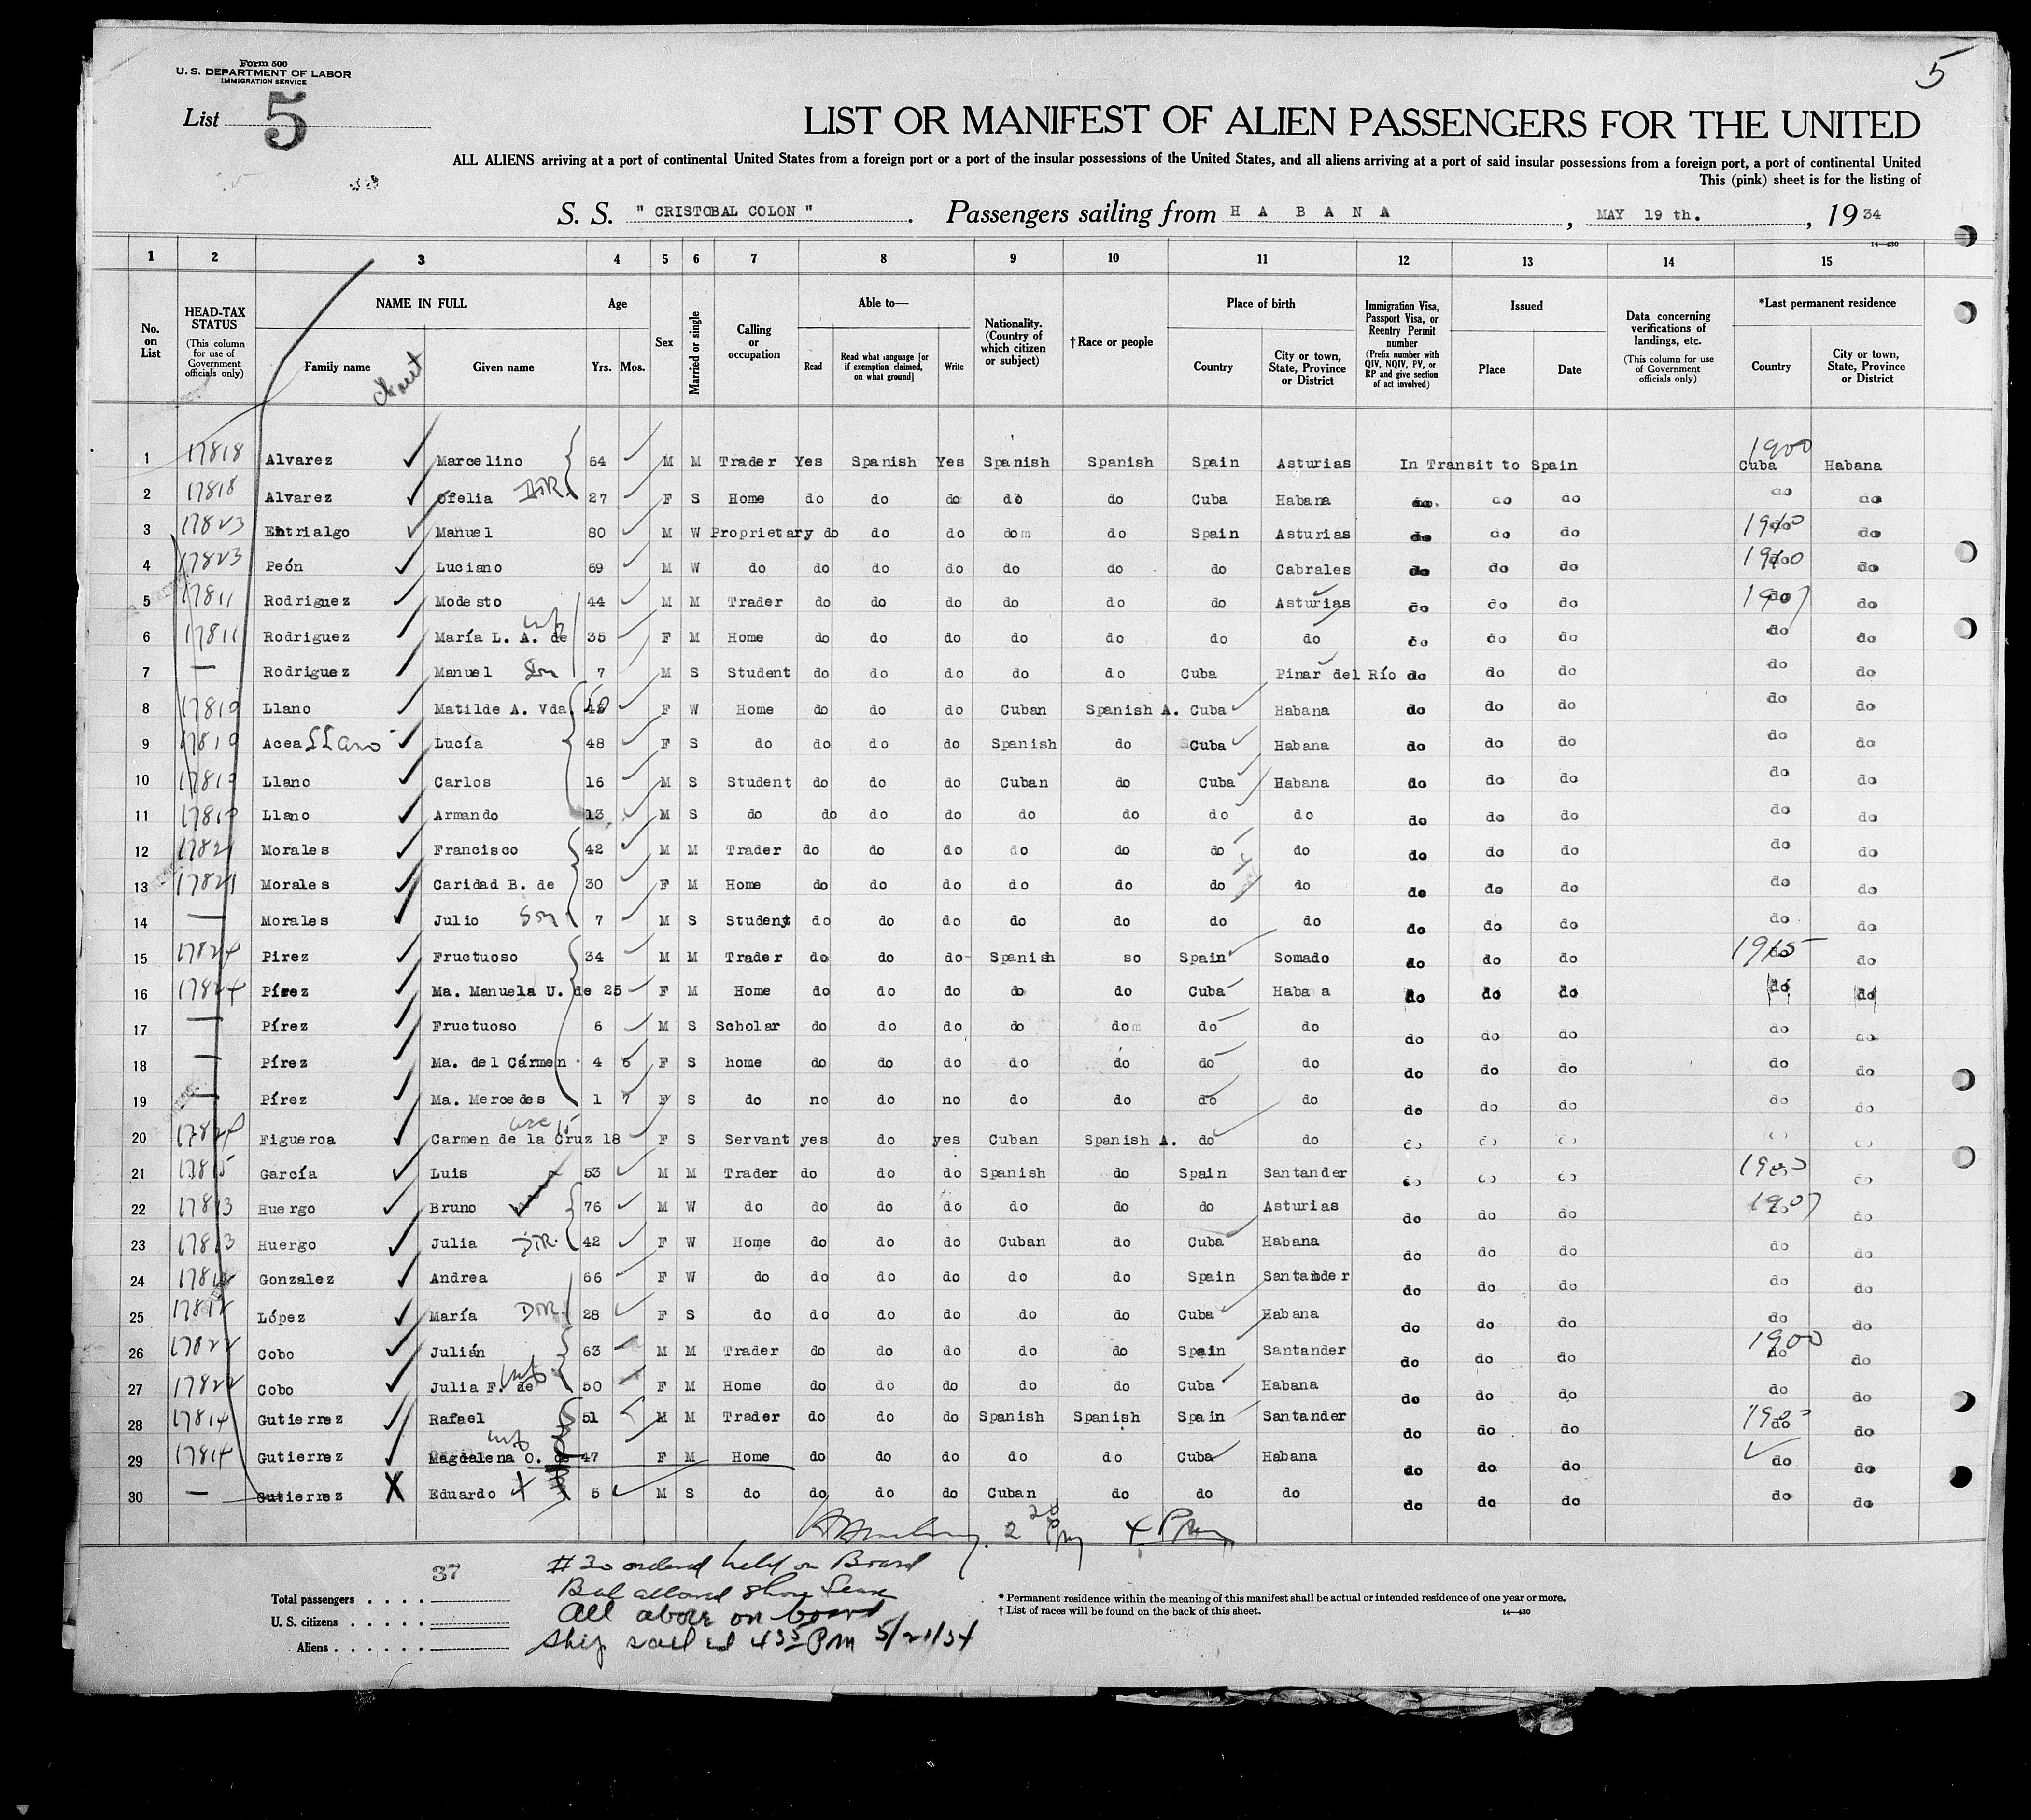 Form 500
U. S. DEPARTMENT OF LABOR
IMMIGRATION SERVICE
List 5
5
LIST OR MANIFEST OF ALIEN PASSENGERS FOR THE UNITED
ALL ALIENS arriving at a port of continental United States from a foreign port or a port of the insular possessions of the United States, and all aliens arriving at a port of said insular possessions from a foreign port, a port of continental United
This (pink) sheet is for the listing of
S. S. " CRISTOBAL COLON " . Passengers sailing from H A B A N A , MAY 19 th. , 19 34
14—430
1 2 3 4 5 6 7 8 9 10 11 12 13 14 15
No. on List HEAD-TAX STATUS (This column for use of Government officials only) NAME IN FULL Family name Given name Age Yrs. Mos. Sex Married or single Calling or occupation Able to— Read Read what language [or if exemption claimed, on what ground] Write Nationality. (Country of which citizen or subject) † Race or people Place of birth Country City or town, State, Province or District Immigration Visa, Passport Visa, or Reentry Permit number (Prefix number with QIV, NQIV, PV, or RP and give section of act involved) Issued Place Date Data concerning verifications of landings, etc. (This column for use of Government officials only) *Last permanent residence Country City or town, State, Province or District
1 17818 Alvarez Marcelino 64 M M Trader Yes Spanish Yes Spanish Spanish Spain Asturias In Transit to Spain 1900 Cuba Habana
2 17818 Alvarez Ofelia DTR. 27 F S Home do do do do do Cuba Habana do. do do do do
3 17823 Entrialgo Manuel 80 M W Proprietary do do do do do Spain Asturias do do do 1910 do do
4 17823 Peón Luciano 69 M W do do do do do do do Cabrales do do do 1910 do do
5 17811 Rodriguez Modesto 44 M M Trader do do do do do do Asturias do do do 1907 do do
6 17811 Rodriguez María L. A. de wf 35 F M Home do do do do do do do do do do do do
7 — Rodriguez Manuel Son 7 M S Student do do do do do Cuba Pinar del Río do do do do do
8 17810 Llano Matilde A. Vda F W Home do do do Cuban Spanish A. Cuba Habana do do do do do
9 17810 Acea LLano Lucía 48 F S do do do do Spanish do Cuba Habana do do do do do
10 17810 Llano Carlos 16 M S Student do do do Cuban do Cuba Habana do do do do do
11 17810 Llano Armando 13 M S do do do do do do do do do do do do do
12 17821 Morales Francisco 42 M M Trader do do do do do do do do do do do do
13 17821 Morales Caridad B. de 30 F M Home do do do do do do do do do do do do
14 — Morales Julio Son 7 M S Student do do do do do do do do do do do do
15 17824 Pirez Fructuoso 34 M M Trader do do do Spanish so Spain Somado do do do 1915 do do
16 17824 Pírez Ma. Manuela U. de 25 F M Home do do do do do Cuba Haba a do do do do do
17 — Pírez Fructuoso 6 M S Scholar do do do do do do do do do do do do
18 — Pírez Ma. del Cármen 4 6 F S home do do do do do do do do do do do do
19 — Pírez Ma. Mercedes 1 7 F S do no do no do do do do do do do do do
20 17824 Figueroa Carmen de la Cruz 18 F S Servant yes do yes Cuban Spanish A. do do do do do do do
21 17815 García Luis 53 M M Trader do do do Spanish do Spain Santander do do do 1900 do
22 17813 Huergo Bruno 76 M W do do do do do do do Asturias do do do 1907 do do
23 17813 Huergo Julia DTR. 42 F W Home do do do Cuban do Cuba Habana do do do do do
24 17812 Gonzalez Andrea 66 F W do do do do do do Spain Santander do do do do do
25 17812 López María DTR. 28 F S do do do do do do Cuba Habana do do do do do
26 17822 Cobo Julián 63 M M Trader do do do do do Spain Santander do do do 1900 do do
27 17822 Cobo Julia F. de wf 50 F M Home do do do do do Cuba Habana do do do do do
28 17814 Gutierrez Rafael 51 M M Trader do do do Spanish Spanish Spain Santander do do do do do
29 17814 Gutierrez Magdalena O. de wf 47 F M Home do do do do do Cuba Habana do do do do do
30 — Gutierrez X Eduardo X 5 M S do do do do Cuban do do do do do do do do
2 20 Pm 4 Pm
37
# 30 ordered held on Board
Bal allowed Shore Leave
All above on board
Ship sailed 4 35 PM 5/21/34
Total passengers . . . .
U. S. citizens . . . .
Aliens . . . . . .
* Permanent residence within the meaning of this manifest shall be actual or intended residence of one year or more.
† List of races will be found on the back of this sheet. 14—430